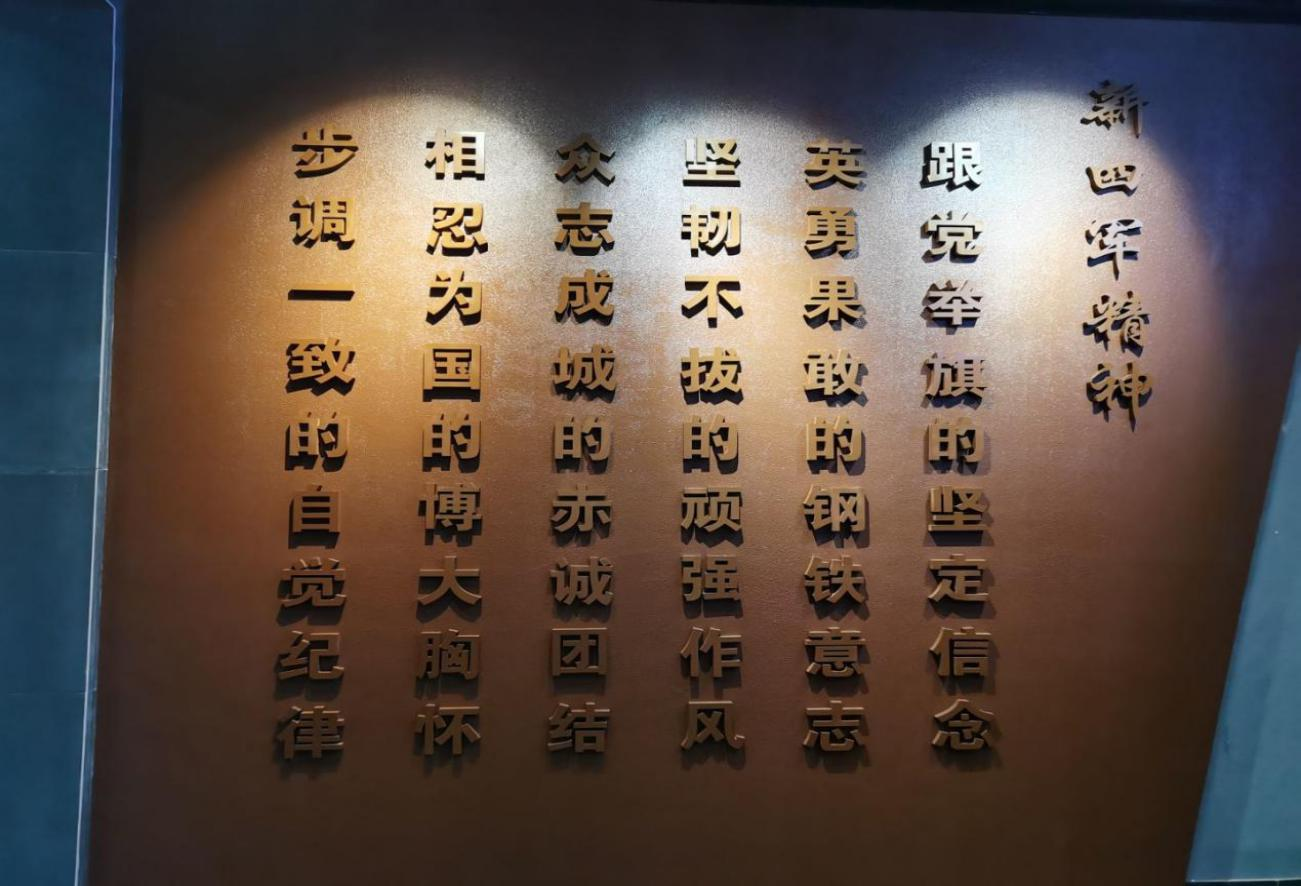 新四军精神
跟党举旗的坚定信念
英勇果敢的钢铁意志
坚韧不拔的顽强作风
众志成城的赤诚团结
相忍为国的博大胸怀
步调一致的自觉纪律